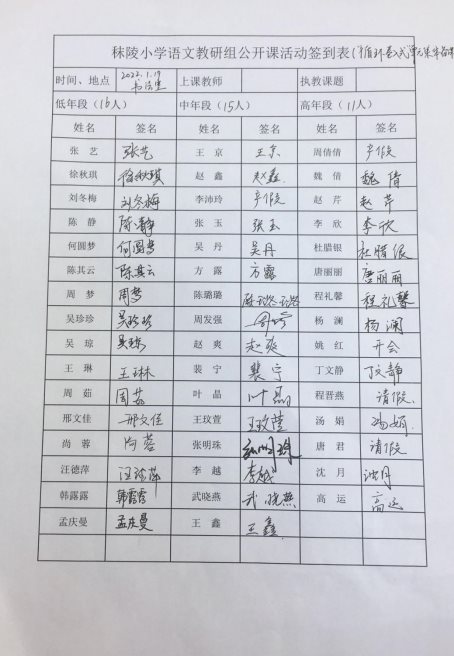 秣陵小学语文教研组公开课活动签到表(循环卷入式单元集体备课
时间、地点 2022.1.19 上课教师 执教课题
低年段(16人) 中年段(15人) 高年段(11人)
姓名 签名 姓名 签名 姓名 签名
张艺 张艺 王京 王京 周倩倩 产假
徐秋琪 徐秋琪 赵鑫 赵鑫 魏倩 魏倩
刘冬梅 刘冬梅 李沛玲 产假 赵芹 赵芹
陈静 陈静 张玉 张玉 李欣 李欣
何圆梦 何圆梦 吴丹 吴丹 杜腊银 杜腊银
陈其云 陈其云 方露 方露 唐丽丽 唐丽丽
周梦 周梦 陈璐璐 陈璐璐 程礼馨 程礼馨
吴珍珍 吴珍珍 周发强 杨澜 杨澜
吴琼 吴琼 赵爽 赵爽 姚红 开会
王琳 王琳 裴宁 裴宁 丁文静 丁文静
周茹 周茹 叶晶 叶晶 程晋燕 请假
邢文佳 邢文佳 王玟萱 王玟萱 汤娟 汤娟
尚蓉 尚蓉 张明珠 张明珠 唐君 请假
汪德萍 汪德萍 李越 李越 沈月 沈月
韩露露 韩露露 武晓燕 武晓燕 高运 高运
孟庆曼 孟庆曼 王鑫 王鑫